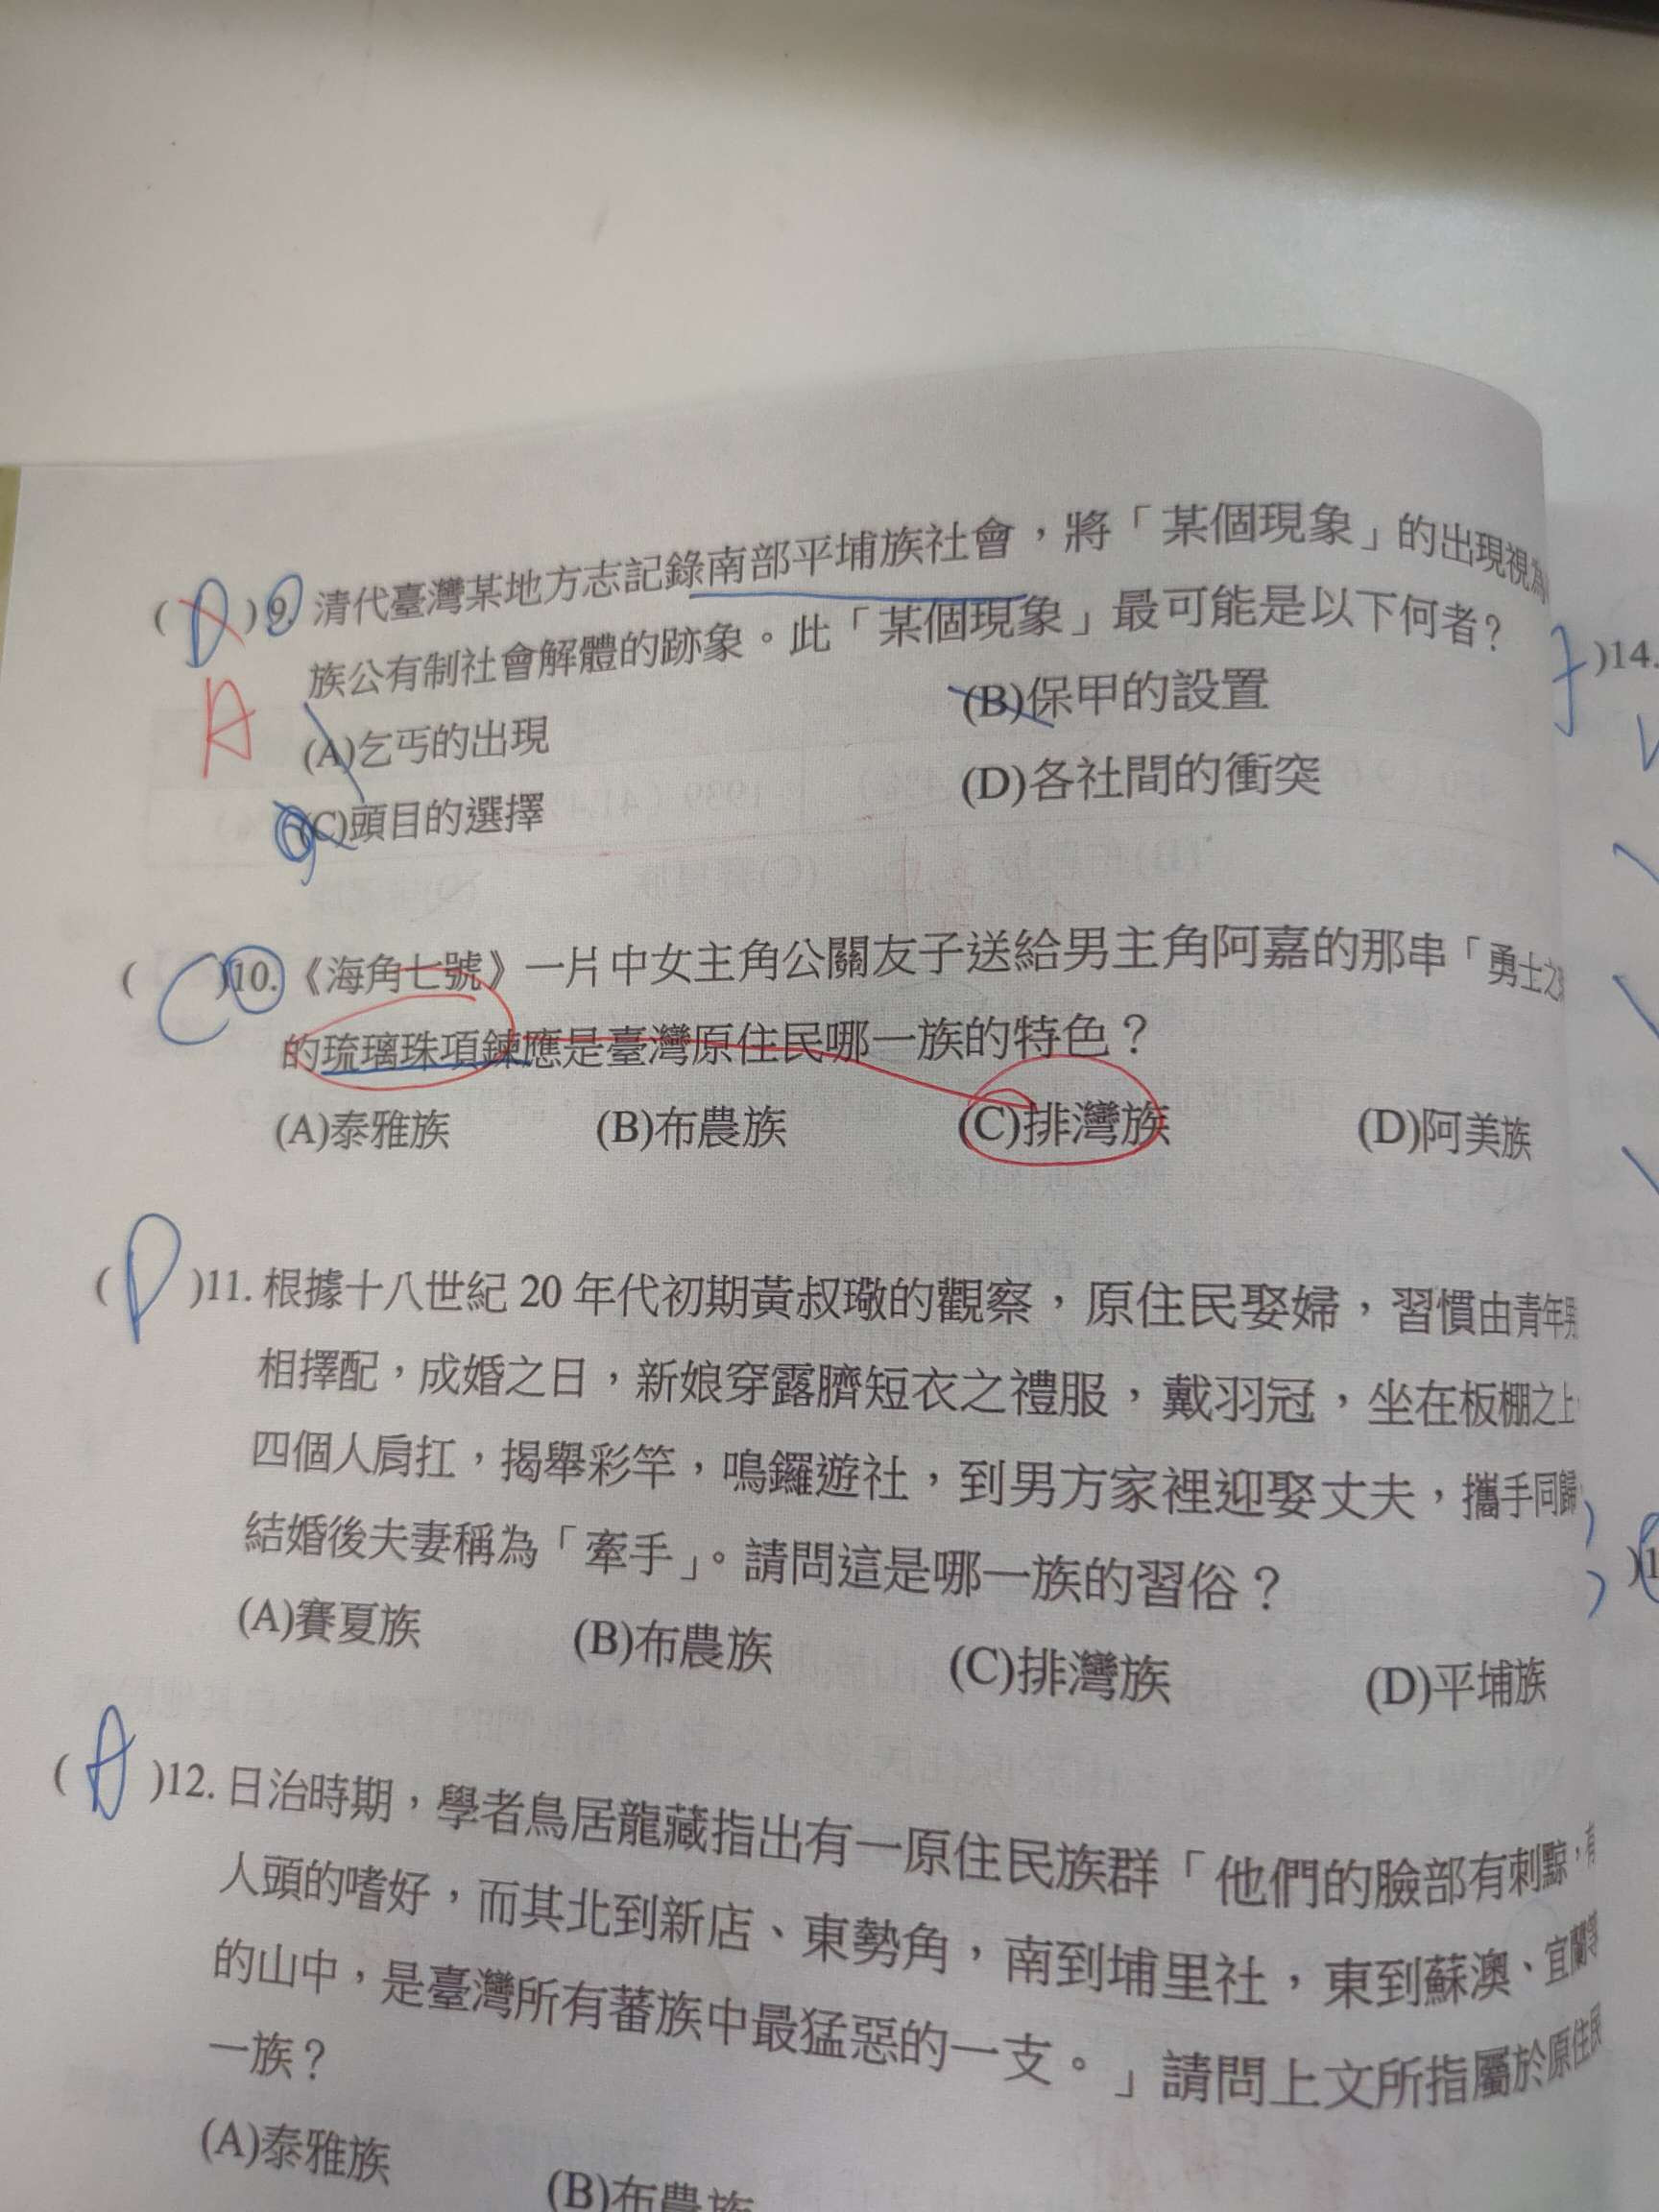 (D)9. 清代臺灣某地方志記錄南部平埔族社會，將「某個現象」的出現視為
族公有制社會解體的跡象。此「某個現象」最可能是以下何者？
A
(A)乞丐的出現 (B)保甲的設置
(C)頭目的選擇 (D)各社間的衝突
(C)10.《海角七號》一片中女主角公關友子送給男主角阿嘉的那串「勇士之
的琉璃珠項鍊應是臺灣原住民哪一族的特色？
(A)泰雅族 (B)布農族 (C)排灣族 (D)阿美族
(D)11. 根據十八世紀 20 年代初期黃叔璥的觀察，原住民娶婦，習慣由青年男
相擇配，成婚之日，新娘穿露臍短衣之禮服，戴羽冠，坐在板棚之上
四個人肩扛，揭舉彩竿，鳴鑼遊社，到男方家裡迎娶丈夫，攜手同歸
結婚後夫妻稱為「牽手」。請問這是哪一族的習俗？
(A)賽夏族 (B)布農族 (C)排灣族 (D)平埔族
(A)12. 日治時期，學者鳥居龍藏指出有一原住民族群「他們的臉部有刺黥，有
人頭的嗜好，而其北到新店、東勢角，南到埔里社，東到蘇澳、宜蘭等
的山中，是臺灣所有蕃族中最猛惡的一支。」請問上文所指屬於原住民
一族？
(A)泰雅族 (B)布農族
)14.